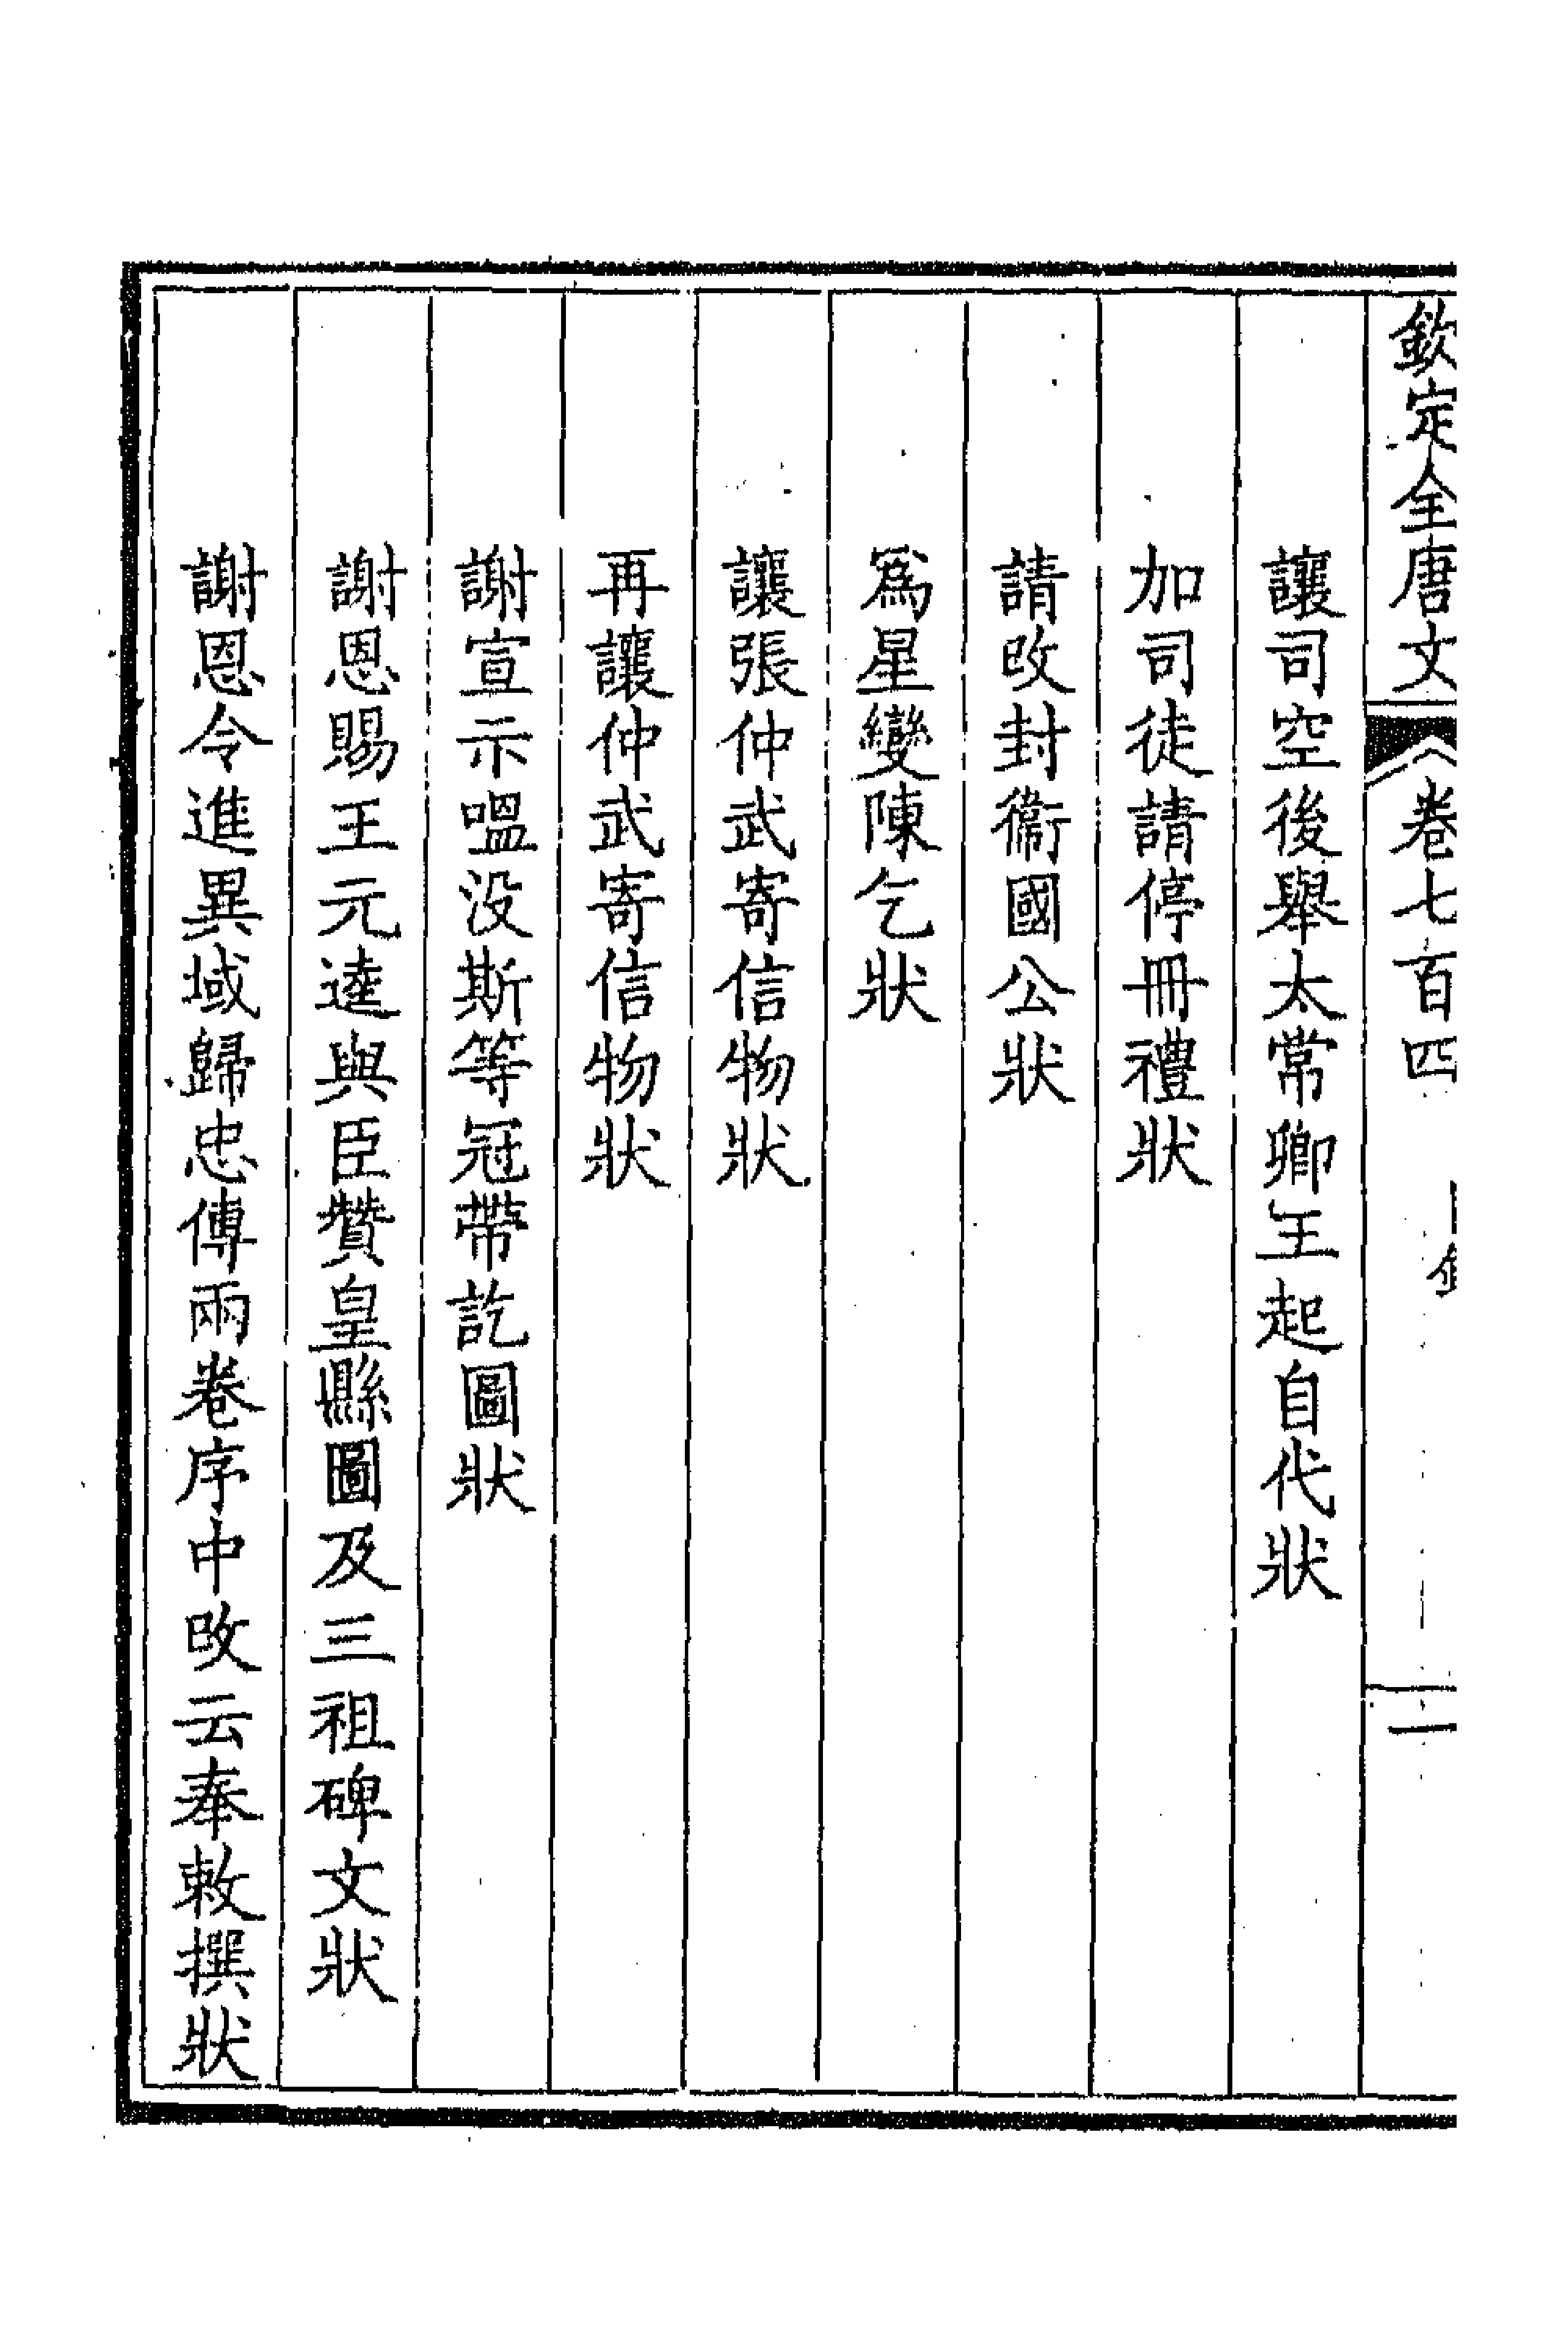 欽定全唐文　卷七百四　目錄　一
讓司空後舉太常卿王起自代狀
加司徒請停冊禮狀
請改封衞國公狀
爲星變陳乞狀
讓張仲武寄信物狀
再讓仲武寄信物狀
謝宣示嗢没斯等冠帶訖圖狀
謝恩賜王元逵與臣贊皇縣圖及三祖碑文狀
謝恩令進異域歸忠傳兩卷序中改云奉敕撰狀